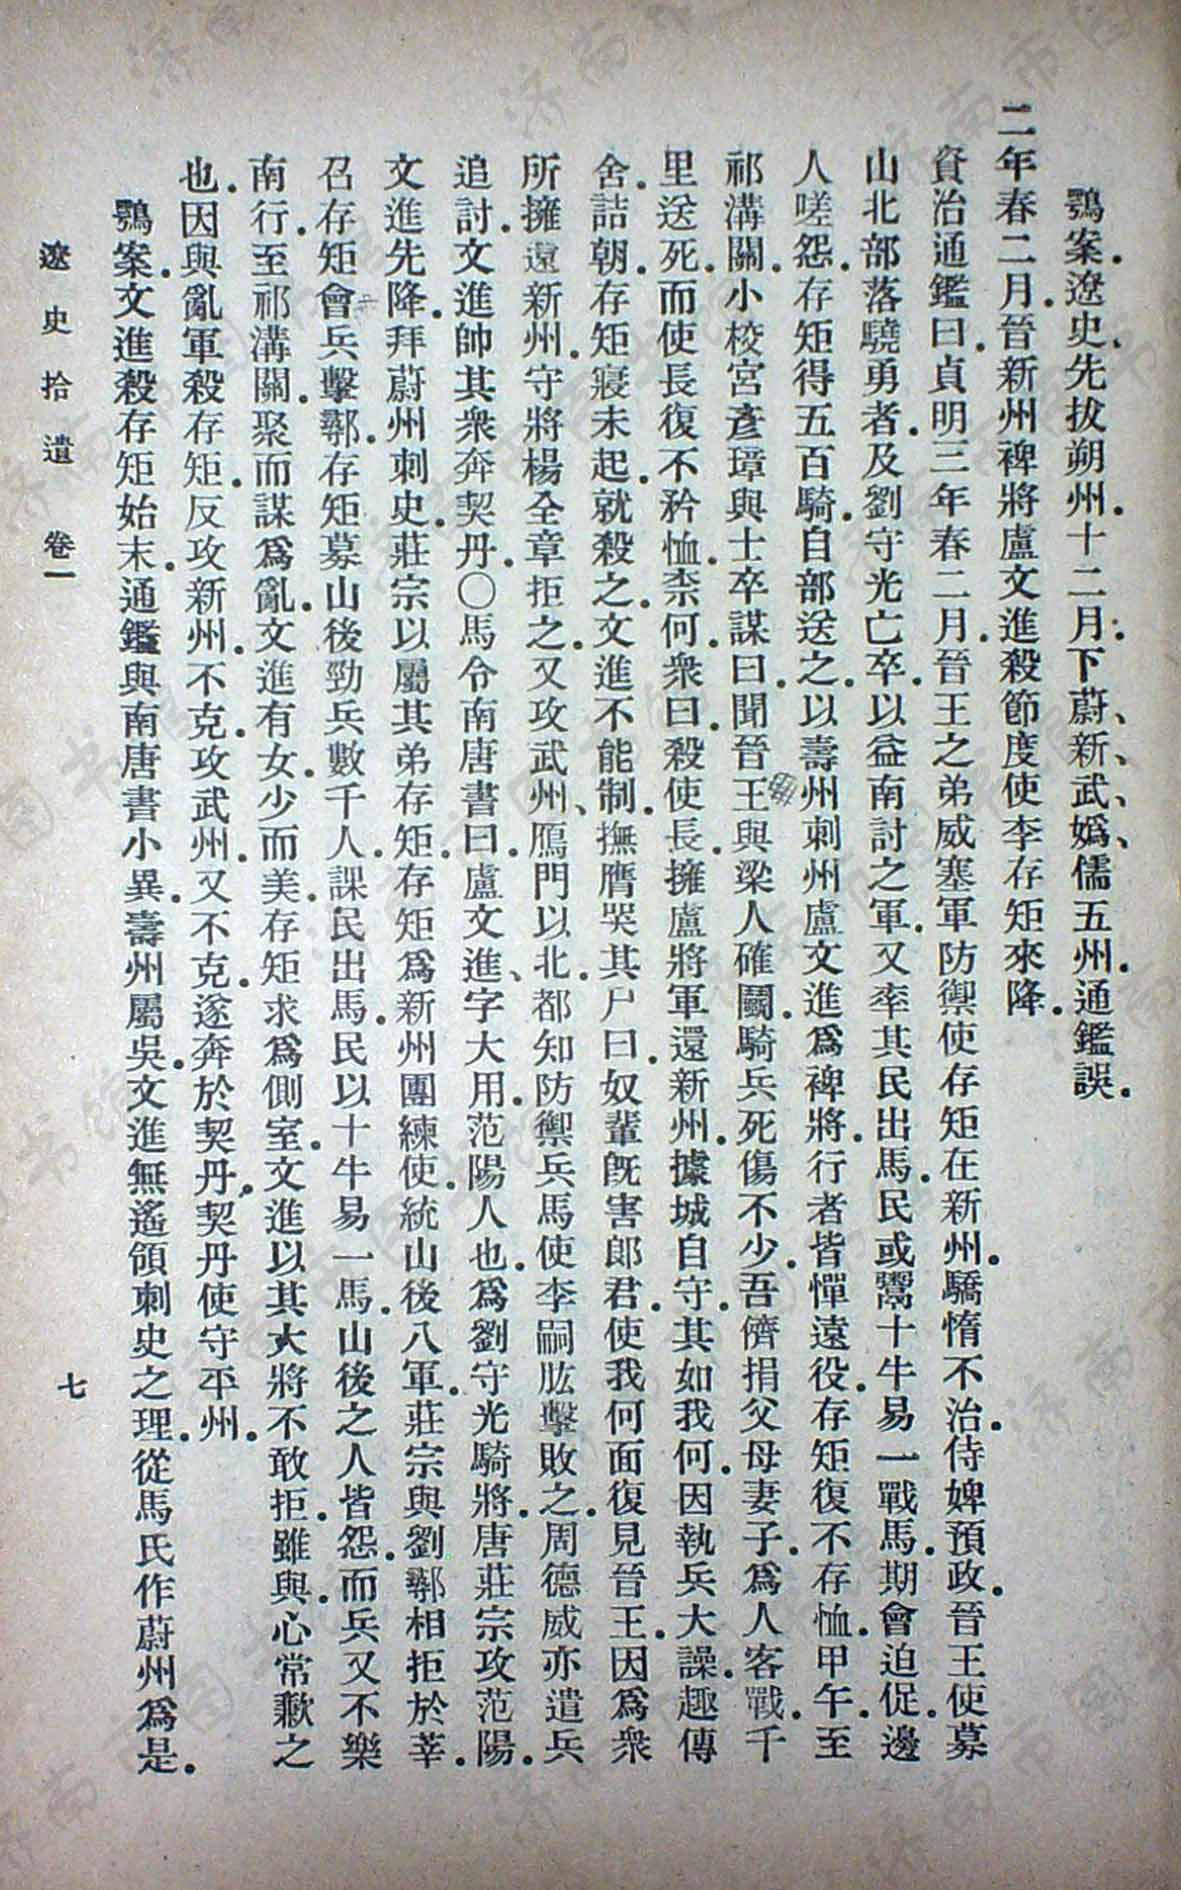 鶚案遼史先拔朔州．十二月．下蔚、新、武、嬀、儒五州．通鑑誤．
二年春二月．晉新州裨將盧文進殺節度使李存矩來降．
資治通鑑曰．貞明三年春二月．晉王之弟威塞軍防禦使存矩在新州．驕惰不治．侍婢預政．晉王使募
山北部落驍勇者．及劉守光亡卒．以益南討之軍．又率其民出馬．民或鬻十牛易一戰馬．期會迫促．邊
人嗟怨．存矩得五百騎．自部送之．以壽州刺州盧文進爲裨將．行者皆憚遠役．存矩復不存恤．甲午．至
祁溝關．小校宮彥璋與士卒謀曰．聞晉王與梁人確鬬．騎兵死傷不少．吾儕捐父母妻子．爲人客戰．千
里送死．而使長復不矜恤．柰何．衆曰．殺使長．擁盧將軍還新州．據城自守．其如我何．因執兵大譟．趣傳
舍．詰朝．存矩寢未起．就殺之．文進不能制．撫膺哭其尸曰．奴輩旣害郎君．使我何面復見晉王．因爲衆
所擁還新州．守將楊全章拒之．又攻武州、鴈門以北．都知防禦兵馬使李嗣肱擊敗之．周德威亦遣兵
追討．文進帥其衆奔契丹．○馬令南唐書曰．盧文進、字大用．范陽人也．爲劉守光騎將．唐莊宗攻范陽．
文進先降．拜蔚州刺史．莊宗以屬其弟存矩．存矩爲新州團練使．統山後八軍．莊宗與劉鄩相拒於莘．
召存矩會兵擊鄩．存矩募山後勁兵數千人．課民出馬．民以十牛易一馬．山後之人皆怨．而兵又不樂
南行．至祁溝關．聚而謀爲亂．文進有女．少而美．存矩求爲側室．文進以其大將不敢拒．雖與．心常歉之
也．因與亂軍殺存矩．反攻新州．不克．攻武州．又不克．遂奔於契丹．契丹使守平州．
鶚案．文進殺存矩始末．通鑑與南唐書小異．壽州屬吳．文進無遙領刺史之理．從馬氏作蔚州爲是．
遼史拾遺　卷一　七